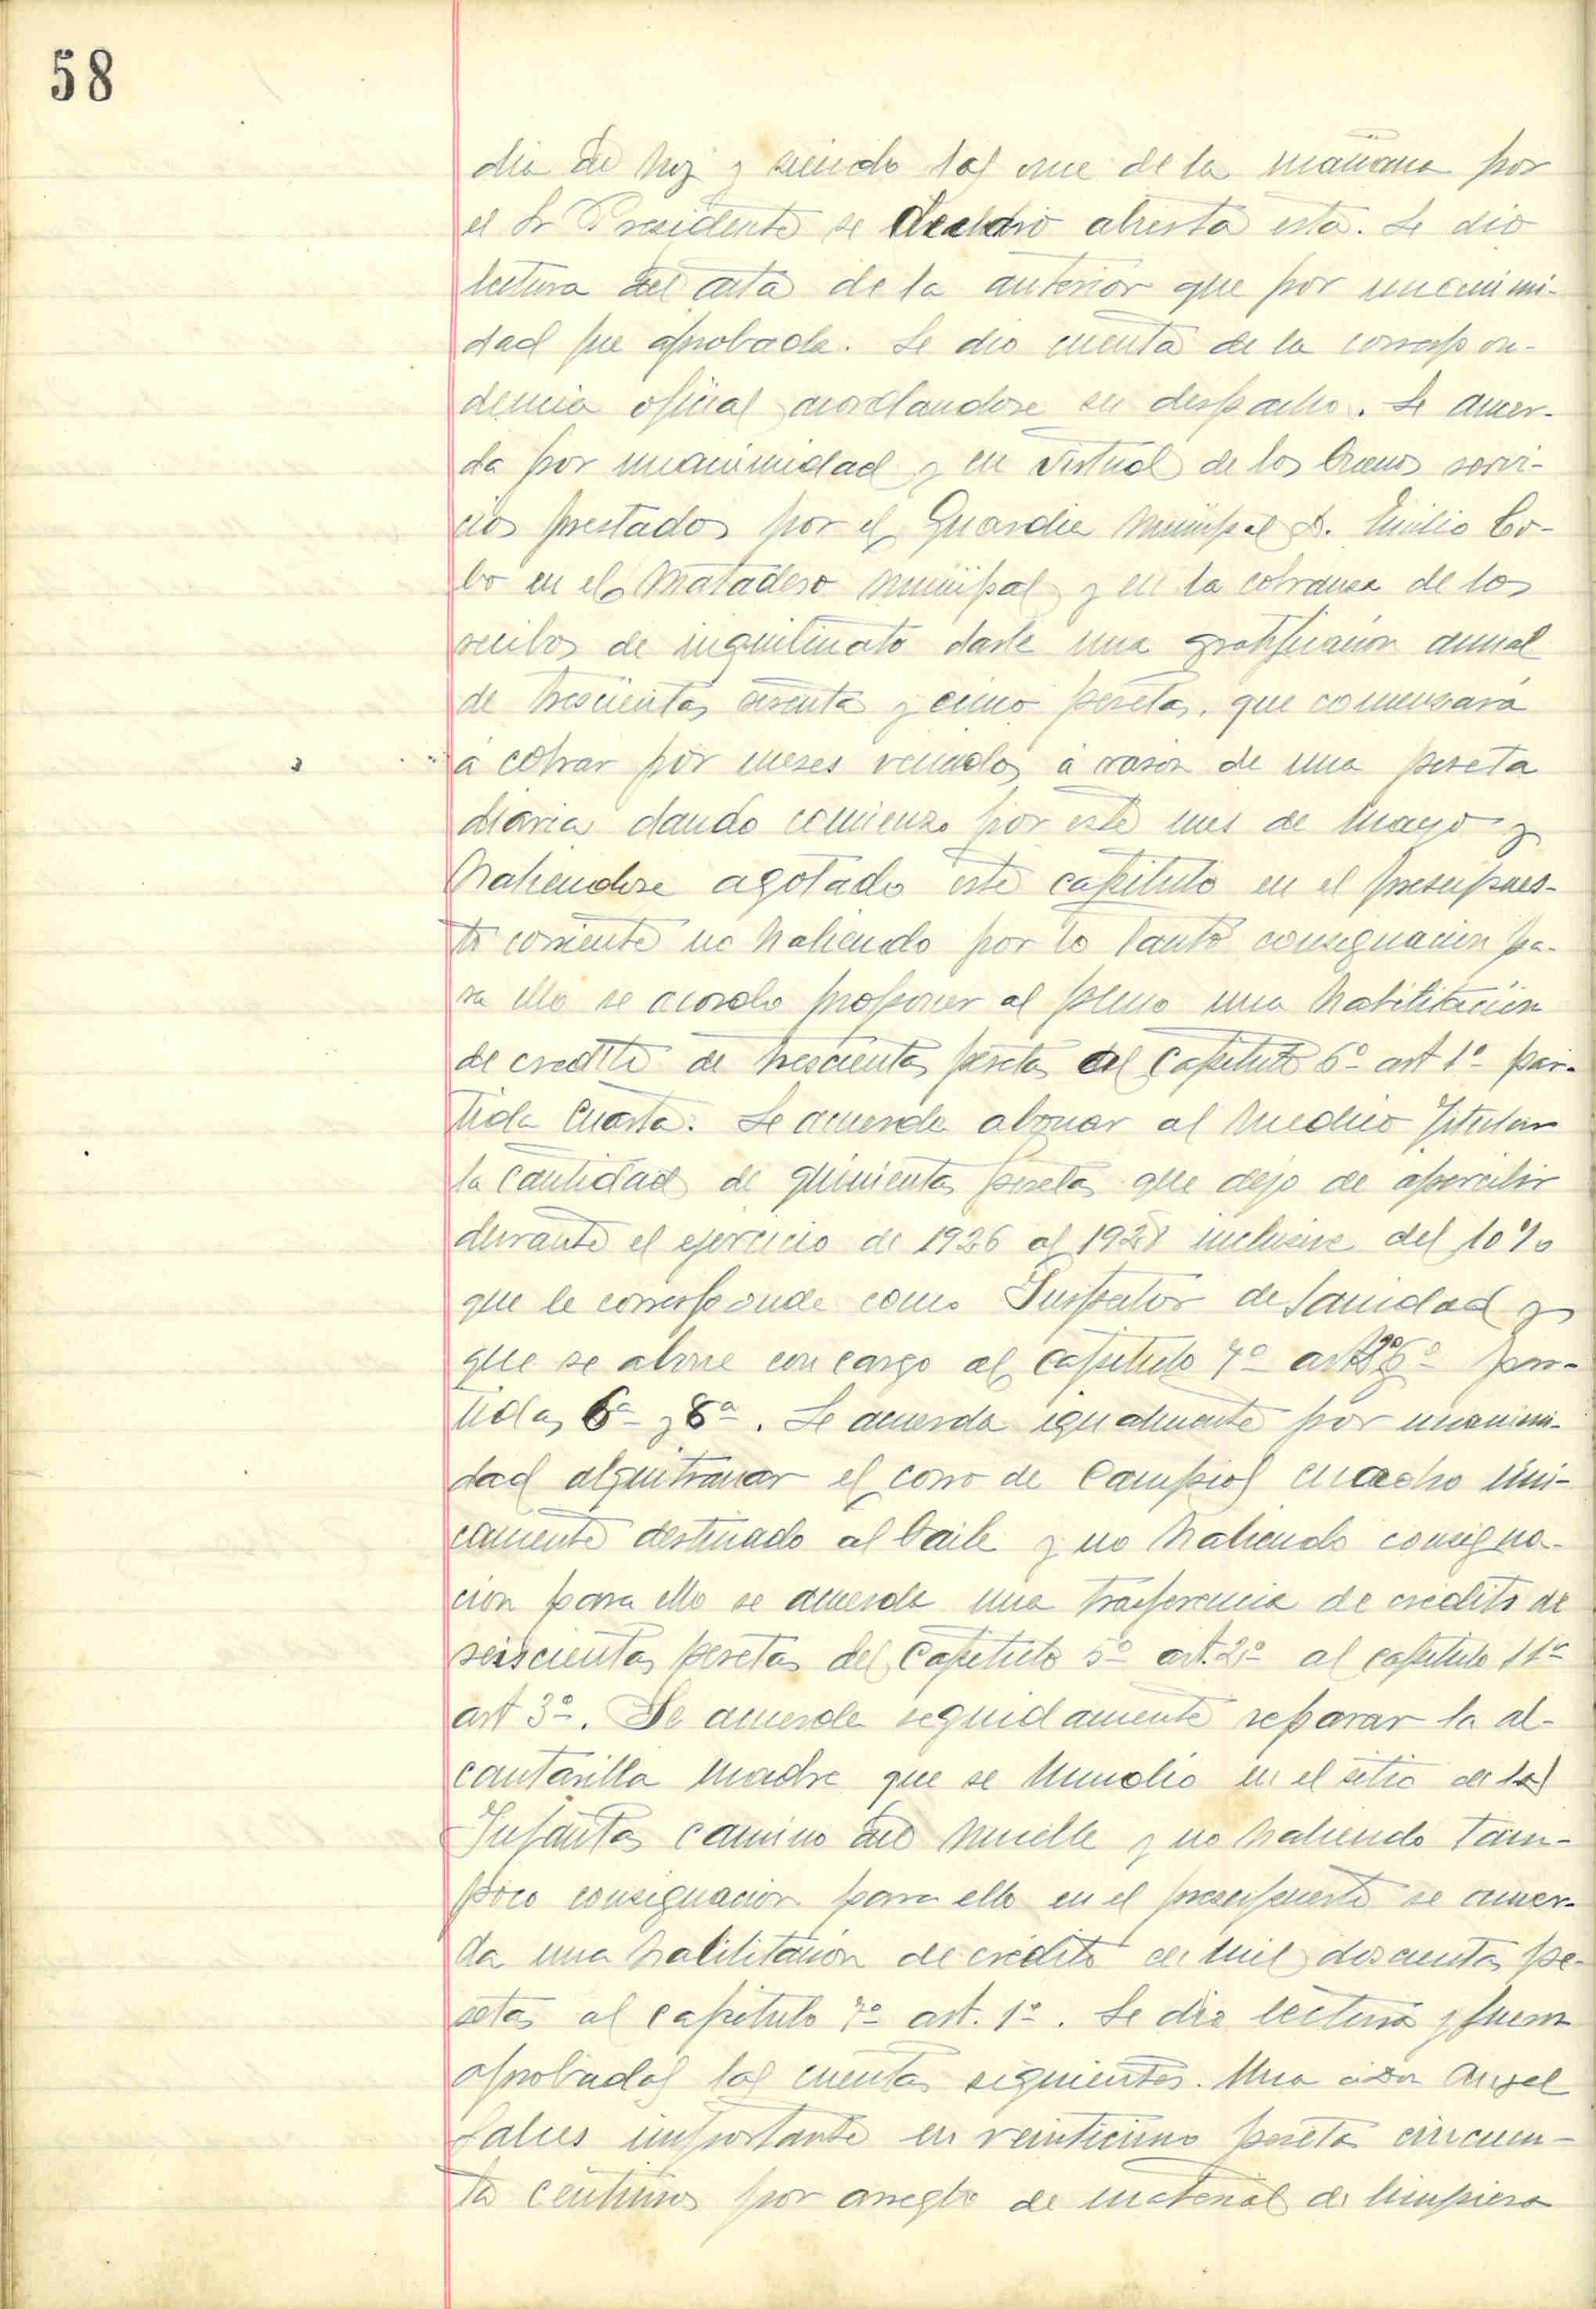 58
dia de hoy y siendo las once de la mañana por
el Sr Presidente se declaró abierta esta. Se dio
lectura del acta de la anterior que por unanimi-
dad fue aprobada. Se dio cuenta de la correspon-
dencia oficial acordandose su despacho. Se acuer-
da por unanimidad y en virtud de los buenos servi-
cios prestados por el Guardia Municipal D. Emilio Co-
bo en el Matadero Municipal y en la cobranza de los
recibos de inquilinato darle una gratificacion anual
de trescientas sesenta y cinco pesetas, que comenzara
á cobrar por meses vencidos á rason de una peseta
diaria dando comienzo por este mes de Mayo y
habiendose agotado este capitulo en el presupues-
to corriente no habiendo por lo tanto consignacion pa-
ra ello se acordo proponer al pleno una habilitacion
de credito de trescientas pesetas del Capitulo 6º art 1º par-
tida Cuarta. Se acuerda abonar al Medico Titular
la cantidad de quinientas pesetas que dejo de apercibir
durante el ejercicio de 1926 al 1928 inclusive del 10%
que le corresponde como Inspector de Sanidad y
que se abone con cargo al capitulo 7º par-
tidas 6ª y 8ª. Se acuerda igualmente por unanimi-
dad alquitranar el corro de Campios cuacho uni-
camente destinado al baile y no habiendo consigna-
cion para ello se acuerda una trasferencia de credito de
seiscientas pesetas del Capitulo 5º art. 2º al capitulo 11º
art 3º. Se acuerda seguidamente reparar la al-
cantarilla madre que se hundio en el sitio de las
Infantas camino del Muelle y no habiendo tam-
poco consignacion para ello en el presupuesto se acuer-
da una habilitacion de credito de mil doscientas pe-
setas al capitulo 7º art. 1º. Se dio lectura y fueron
aprobadas las cuentas siguientes. Una a Don Angel
importante en veinticinco pesetas cincuen-
ta centimos por arreglo de material de limpieza